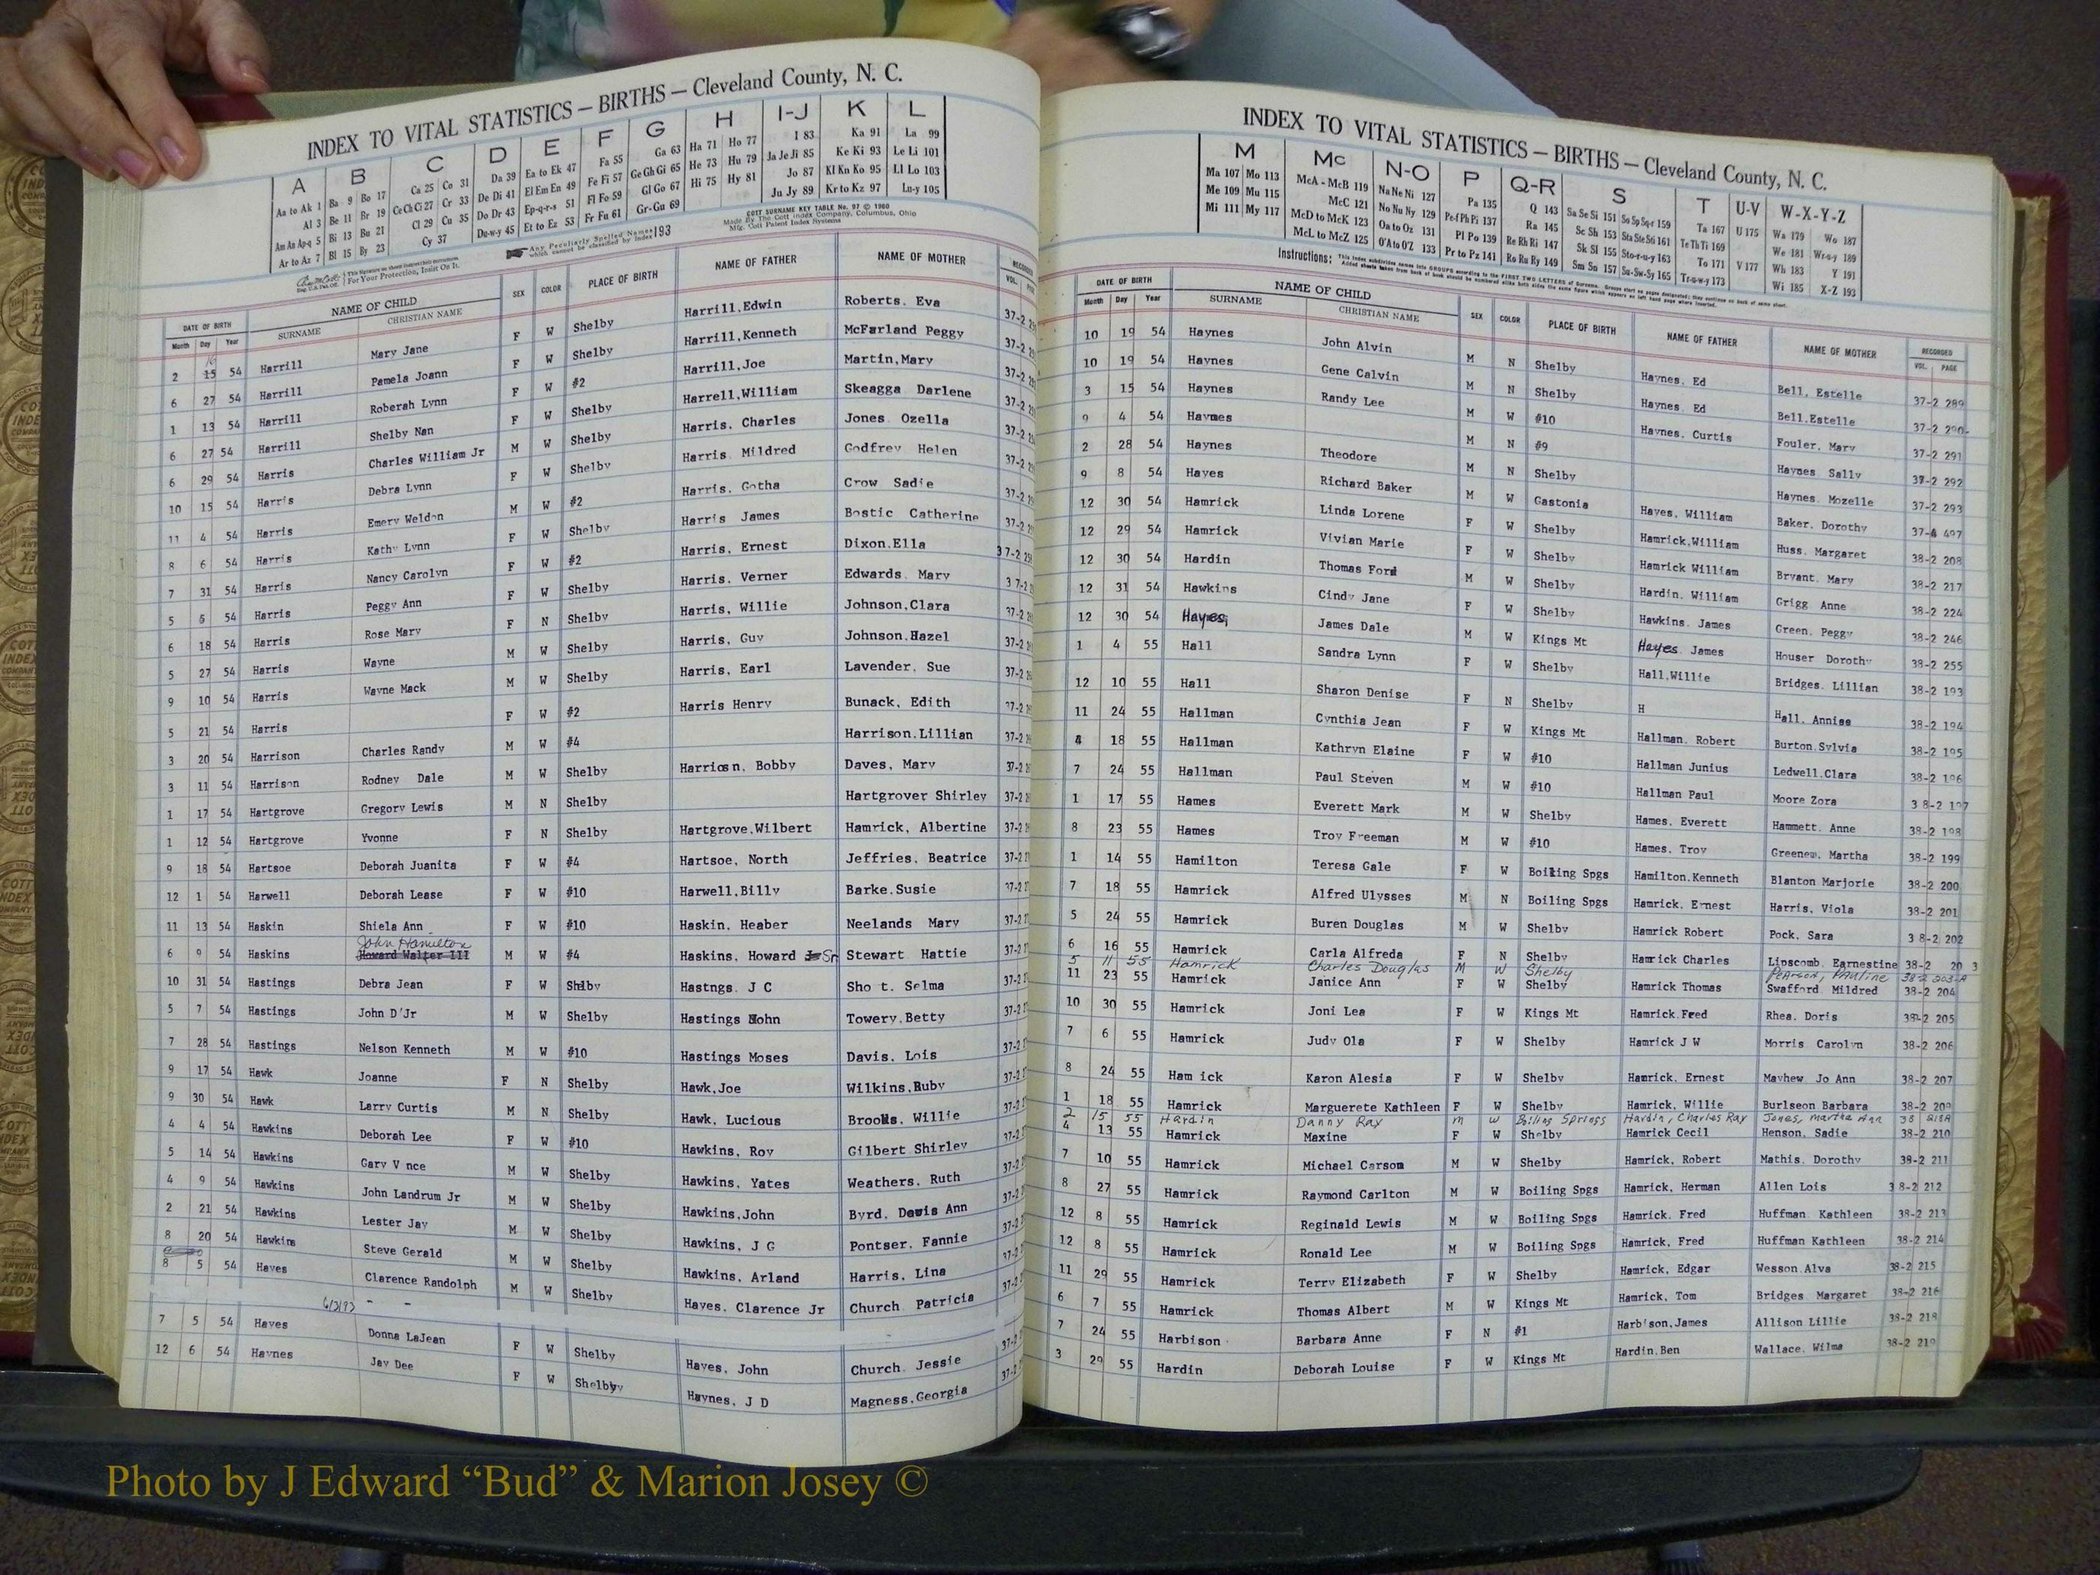 INDEX TO VITAL STATISTICS — BIRTHS — Cleveland County, N. C.
A B C D E F G H I-J K L
Aa to Ak 1 Ba 9 Bo 17 Ca 25 Co 31 Da 39 Ea to Ek 47 Fa 55 Ga 63 Ha 71 Ho 77 I 83 Ka 91 La 99
Al 3 Be 11 Br 19 Ce Ch Ci 27 Cr 33 De Di 41 El Em En 49 Fe Fi 57 Ge Gh Gi 65 He 73 Hu 79 Ja Je Ji 85 Ke Ki 93 Le Li 101
Am An Ap-q 5 Bi 13 Bu 21 Cl 29 Cu 35 Do Dr 43 Ep-q-r-s 51 Fl Fo 59 Gl Go 67 Hi 75 Hy 81 Jo 87 Kl Kn Ko 95 Ll Lo 103
Ar to Az 7 Bl 15 By 23 Cy 37 Du-w-y 45 Et to Ez 53 Fr Fu 61 Gr-Gu 69 Ju Jy 89 Kr to Kz 97 Lu-y 105
COTT SURNAME KEY TABLE No. 97 © 1960
Made by The Cott Index Company, Columbus, Ohio
Mfg. Cott Patent Index Systems
Any Peculiarly Spelled Names which cannot be classified by index 193
For Your Protection, Insist On It.
DATE OF BIRTH NAME OF CHILD SEX COLOR PLACE OF BIRTH NAME OF FATHER NAME OF MOTHER RECORDED
Month Day Year SURNAME CHRISTIAN NAME VOL.
2 15 54 Harrill Mary Jane F W Shelby Harrill,Edwin Roberts. Eva 37-2
6 27 54 Harrill Pamela Joann F W Shelby Harrill,Kenneth McFarland Peggy 37-2
1 13 54 Harrill Roberah Lynn F W #2 Harrill,Joe Martin,Mary 37-2
6 27 54 Harrill Shelby Nan F W Shelby Harrell,William Skeagga Darlene 37-2
6 29 54 Harris Charles William Jr M W Shelby Harris. Charles Jones Ozella 37-2
10 15 54 Harris Debra Lynn F W Shelby Harris Mildred Godfrey Helen 37-2
11 4 54 Harris Emery Weldon M W #2 Harris. Gotha Crow Sadie 37-2
8 6 54 Harris Kathy Lynn F W Shelby Harris James Bostic Catherine 37-2
7 31 54 Harris Nancy Carolyn F W #2 Harris, Ernest Dixon.Ella 37-2
5 5 54 Harris Peggy Ann F W Shelby Harris. Verner Edwards. Mary 37-2
6 18 54 Harris Rose Mary F N Shelby Harris, Willie Johnson,Clara 37-2
5 27 54 Harris Wayne M W Shelby Harris, Guy Johnson,Hazel 37-2
9 10 54 Harris Wayne Mack M W Shelby Harris, Earl Lavender, Sue 37-2
5 21 54 Harris F W #2 Harris Henry Bunack, Edith 37-2
3 20 54 Harrison Charles Randy M W #4 Harrison.Lillian 37-2
3 11 54 Harrison Rodney Dale M W Shelby Harrison, Bobby Daves, Mary 37-2
1 17 54 Hartgrove Gregory Lewis M N Shelby Hartgrover Shirley 37-2
1 12 54 Hartgrove Yvonne F N Shelby Hartgrove.Wilbert Hamrick, Albertine 37-2
9 18 54 Hartsoe Deborah Juanita F W #4 Hartsoe, North Jeffries, Beatrice 37-2
12 1 54 Harwell Deborah Lease F W #10 Harwell,Billy Barke.Susie 37-2
11 13 54 Haskin Shiela Ann F W #10 Haskin, Heaber Neelands Mary 37-2
John Hamilton
6 9 54 Haskins Howard Walter III M W #4 Haskins, Howard Jr Sr Stewart Hattie 37-2
10 31 54 Hastings Debra Jean F W Shelby Hastngs. J C Sho t. Selma 37-2
5 7 54 Hastings John D'Jr M W Shelby Hastings John Towery.Betty 37-2
7 28 54 Hastings Nelson Kenneth M W #10 Hastings Moses Davis, Lois 37-2
9 17 54 Hawk Joanne F N Shelby Hawk,Joe Wilkins,Ruby 37-2
9 30 54 Hawk Larry Curtis M N Shelby Hawk, Lucious Brooks. Willie 37-2
4 4 54 Hawkins Deborah Lee F W #10 Hawkins, Roy Gilbert Shirley 37-2
5 14 54 Hawkins Gary V nce M W Shelby Hawkins, Yates Weathers. Ruth 37-2
4 9 54 Hawkins John Landrum Jr M W Shelby Hawkins,John Byrd. Davis Ann 37-2
2 21 54 Hawkins Lester Jay M W Shelby Hawkins, J G Pontser, Fannie 37-2
8 20 54 Hawkins Steve Gerald M W Shelby Hawkins, Arland Harris, Lina 37-2
8 5 54 Hayes Clarence Randolph M W Shelby Hayes, Clarence Jr Church Patricia 37-2
7 5 54 Hayes Donna LaJean F W Shelby Hayes, John Church. Jessie 37-2
12 6 54 Haynes Jay Dee F W Shelbyy Haynes, J D Magness.Georgia 37-2
INDEX TO VITAL STATISTICS — BIRTHS — Cleveland County, N. C.
M Mc N-O P Q-R S T U-V W-X-Y-Z
Ma 107 Mo 113 McA - McB 119 Na Ne Ni 127 Pa 135 Q 143 Sa Se Si 151 So Sp Sq-r 159 Ta 167 U 175 Wa 179 Wo 187
Me 109 Mu 115 McC 121 No Nu Ny 129 Pe-f Ph Pi 137 Ra 145 Sc Sh 153 Sta Ste Sti 161 Te Th Ti 169 We 181 Wr-u-y 189
Mi 111 My 117 McD to McK 123 Oa to Oz 131 Pl Po 139 Re Rh Ri 147 Sk Sl 155 Sto-r-u-y 163 To 171 V 177 Wh 183 Y 191
McL to McZ 125 O'A to O'Z 133 Pr to Pz 141 Ro Ru Ry 149 Sm Sn 157 Su-Sw-Sy 165 Tr-u-w-y 173 Wi 185 X-Z 193
Instructions: This index subdivides names into GROUPS according to the FIRST TWO LETTERS of Surname.
DATE OF BIRTH NAME OF CHILD SEX COLOR PLACE OF BIRTH NAME OF FATHER NAME OF MOTHER RECORDED
Month Day Year SURNAME CHRISTIAN NAME VOL. PAGE
10 19 54 Haynes John Alvin M N Shelby Haynes, Ed Bell, Estelle 37-2 289
10 19 54 Haynes Gene Calvin M N Shelby Haynes. Ed Bell.Estelle 37-2 290
3 15 54 Haynes Randy Lee M W #10 Haynes, Curtis Fouler, Mary 37-2 291
9 4 54 Haymes M N #9 Haynes Sally 37-2 292
2 28 54 Haynes Theodore M N Shelby Haynes. Mozelle 37-2 293
9 8 54 Hayes Richard Baker M W Gastonia Hayes, William Baker. Dorothy 37-4 497
12 30 54 Hamrick Linda Lorene F W Shelby Hamrick,William Huss. Margaret 38-2 208
12 29 54 Hamrick Vivian Marie F W Shelby Hamrick William Bryant. Mary 38-2 217
12 30 54 Hardin Thomas Ford M W Shelby Hardin. William Grigg Anne 38-2 224
12 31 54 Hawkins Cindy Jane F W Shelby Hawkins. James Green. Peggy 38-2 246
12 30 54 Hayes, James Dale M W Kings Mt Hayes James Houser Dorothy 38-2 255
1 4 55 Hall Sandra Lynn F W Shelby Hall,Willie Bridges. Lillian 38-2 193
12 10 55 Hall Sharon Denise F N Shelby H Hall. Annise 38-2 194
11 24 55 Hallman Cynthia Jean F W Kings Mt Hallman. Robert Burton.Sylvia 38-2 195
4 18 55 Hallman Kathryn Elaine F W #10 Hallman Junius Ledwell.Clara 38-2 196
7 24 55 Hallman Paul Steven M W #10 Hallman Paul Moore Zora 3 8-2 197
1 17 55 Hames Everett Mark M W Shelby Hames. Everett Hammett. Anne 38-2 198
8 23 55 Hames Troy Freeman M W #10 Hames. Troy Greenem, Martha 38-2 199
1 14 55 Hamilton Teresa Gale F W Boiling Spgs Hamilton.Kenneth Blanton Marjorie 38-2 200
7 18 55 Hamrick Alfred Ulysses M N Boiling Spgs Hamrick. Ernest Harris. Viola 38-2 201
5 24 55 Hamrick Buren Douglas M W Shelby Hamrick Robert Pock. Sara 3 8-2 202
6 16 55 Hamrick Carla Alfreda F N Shelby Hamrick Charles Lipscomb. Earnestine 38-2 20 3
5 11 55 Hamrick Charles Douglas M W Shelby Pearson, Pauline 38-2 203-A
11 23 55 Hamrick Janice Ann F W Shelby Hamrick Thomas Swafford Mildred 38-2 204
10 30 55 Hamrick Joni Lea F W Kings Mt Hamrick.Fred Rhea. Doris 38-2 205
7 6 55 Hamrick Judy Ola F W Shelby Hamrick J W Morris Carolyn 38-2 206
8 24 55 Ham ick Karon Alesia F W Shelby Hamrick, Ernest Mayhew Jo Ann 38-2 207
1 18 55 Hamrick Marguerete Kathleen F W Shelby Hamrick, Willie Burlseon Barbara 38-2 209
2 15 55 Hardin Danny Ray M W Boiling Springs Hardin, Charles Ray Jones, Martha Ann 38 218A
4 13 55 Hamrick Maxine F W Shelby Hamrick Cecil Henson, Sadie 38-2 210
7 10 55 Hamrick Michael Carson M W Shelby Hamrick, Robert Mathis. Dorothy 38-2 211
8 27 55 Hamrick Raymond Carlton M W Boiling Spgs Hamrick, Herman Allen Lois 3 8-2 212
12 8 55 Hamrick Reginald Lewis M W Boiling Spgs Hamrick. Fred Huffman Kathleen 38-2 213
12 8 55 Hamrick Ronald Lee M W Boiling Spgs Hamrick, Fred Huffman Kathleen 38-2 214
11 29 55 Hamrick Terry Elizabeth F W Shelby Hamrick, Edgar Wesson.Alva 38-2 215
6 7 55 Hamrick Thomas Albert M W Kings Mt Hamrick, Tom Bridges Margaret 38-2 216
7 24 55 Harbison Barbara Anne F N #1 Harbison,James Allison Lillie 38-2 218
3 29 55 Hardin Deborah Louise F W Kings Mt Hardin.Ben Wallace. Wilma 38-2 219
Photo by J Edward “Bud” & Marion Josey ©